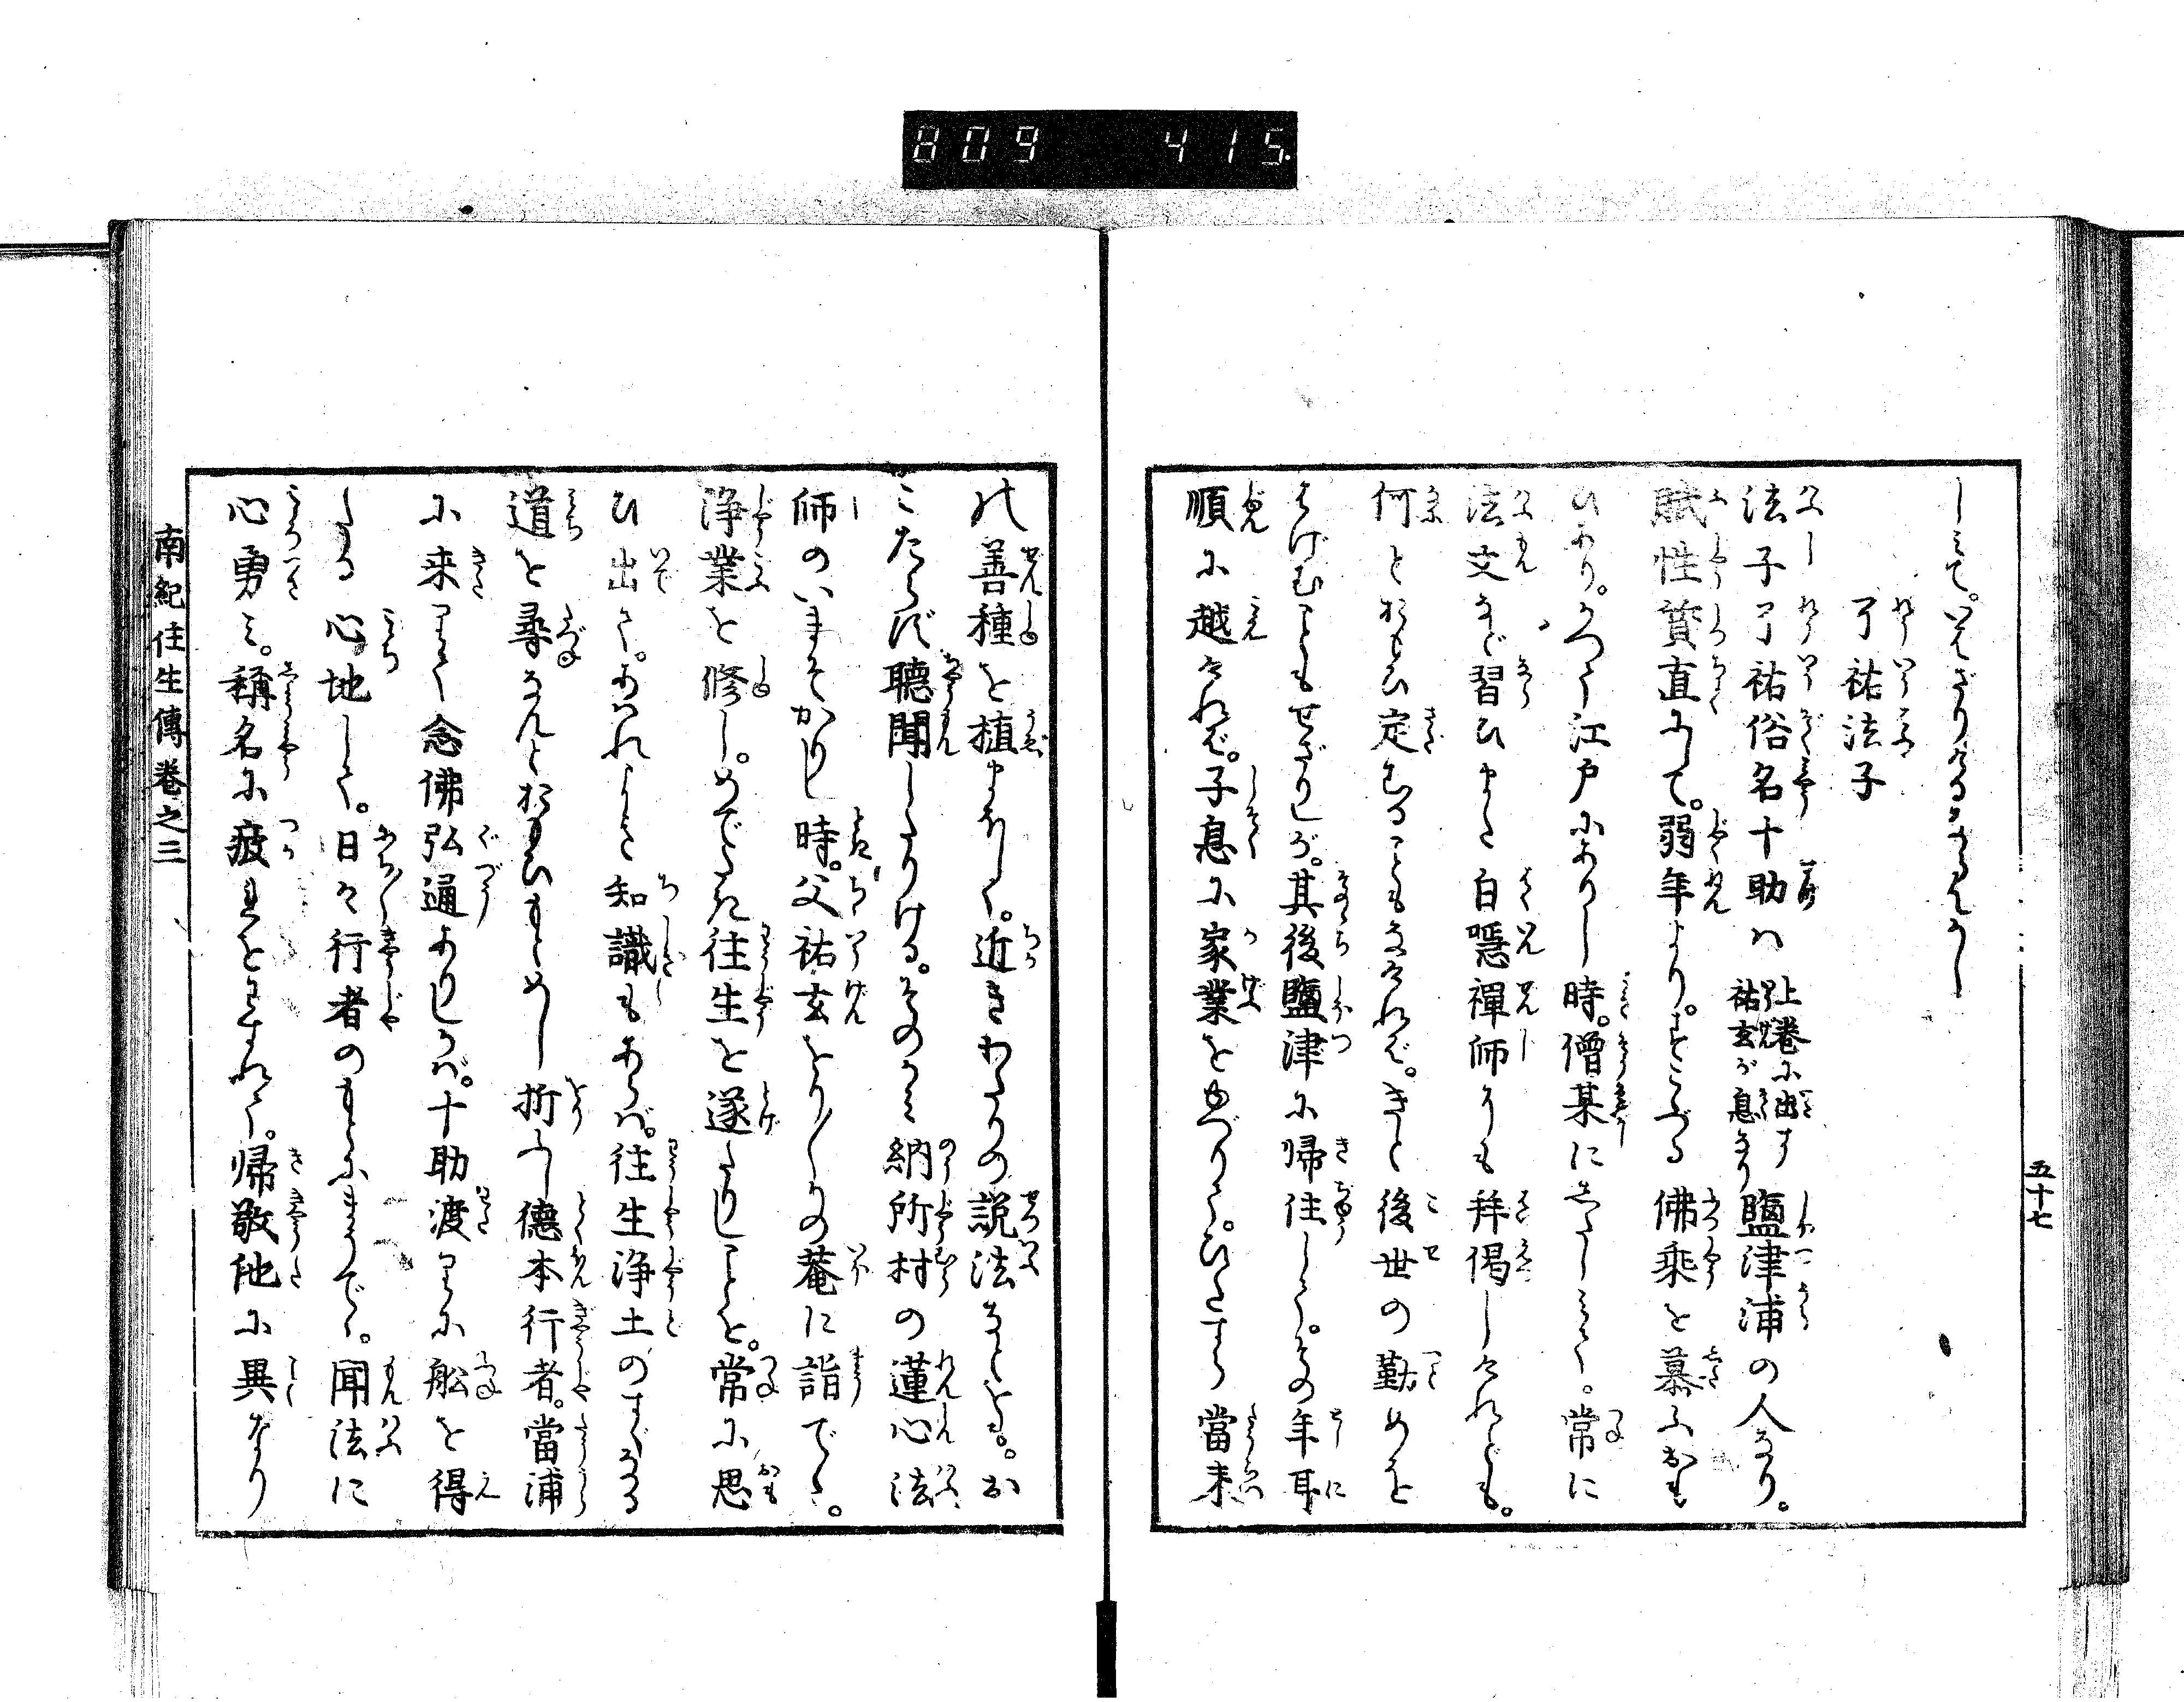 809 415
五十七
しみて。いはざりけるとなるべし
了祐法子
法子了祐俗名十助ハ上巻に出す祐玄が息なり鹽津浦の人なり。
賦性質直にして。弱年より。すこぶる佛乘を慕ふおも
ひあり。かつて江戸にありし時。僧某にしたしみて。常に
法文など習ひまた白隠禪師にも拜偈しけれども。
何とおもひ定むることもなければ。きと後世の勤めを
はげむこともせざりしが。其後鹽津に帰住して。その年耳
順に越ければ。子息に家業をゆづりて。ひたすら當来
の善種を植まほしく。近きわたりの説法などを。お
こたらず聴聞したりける。そのかみ納所村の蓮心法
師のいまそかりし時。父祐玄をり〱かの菴に詣でゝ。
浄業を修し。めでたき往生を遂たりしことを。常に思
ひ出て。あはれよき知識もあらば。往生浄土のすぐなる
道を尋なんとおもひもとめし折ふし德本行者。當浦
に来りて念佛弘通ありしかば。十助渡りに舩を得
たる心地して。日々行者のもとにまうでゝ。聞法に
心勇ミ。稱名に疲れをわすれて。帰敬他に異なり
南紀往生傳巻之三